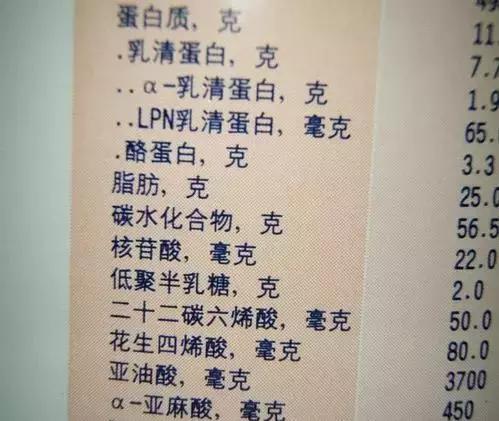 蛋白质, 克 11.
.乳清蛋白, 克 7.7
..α-乳清蛋白, 克 1.9
..LPN乳清蛋白, 毫克 65.
.酪蛋白, 克 3.3
脂肪, 克 25.0
碳水化合物, 克 56.5
核苷酸, 毫克 22.0
低聚半乳糖, 克 2.0
二十二碳六烯酸, 毫克 50.0
花生四烯酸, 毫克 80.0
亚油酸, 毫克 3700
α-亚麻酸, 毫克 450